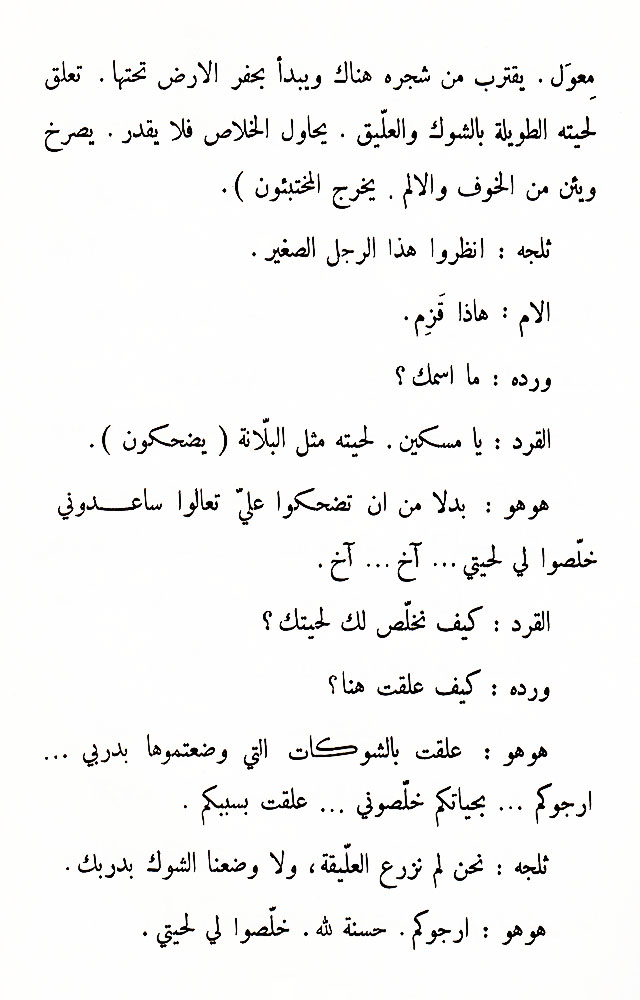 مِعوَل . يقترب من شجره هناك ويبدأ بحفر الارض تحتها . تعلق
لحيته الطويلة بالشوك والعلّيق . يحاول الخلاص فلا يقدر . يصرخ
ويئن من الخوف والالم . يخرج المختبئون ) .
ثلجه : انظروا هذا الرجل الصغير .
الام : هاذا قَزِم .
ورده : ما اسمك ؟
القرد : يا مسكين . لحيته مثل البلّانة ( يضحكون ) .
هوهو : بدلا من ان تضحكوا عليّ تعالوا ساعـــدوني
خلّصوا لي لحيتي ... آخ ... آخ .
القرد : كيف نخلّص لك لحيتك ؟
ورده : كيف علقت هنا ؟
هوهو : علقت بالشوكات التي وضعتموها بدربي ...
ارجوكم ... بحياتكم خلّصوني ... علقت بسببكم .
ثلجه : نحن لم نزرع العلّيقة ، ولا وضعنا الشوك بدربك .
هوهو : ارجوكم . حسنة لله . خلّصوا لي لحيتي .